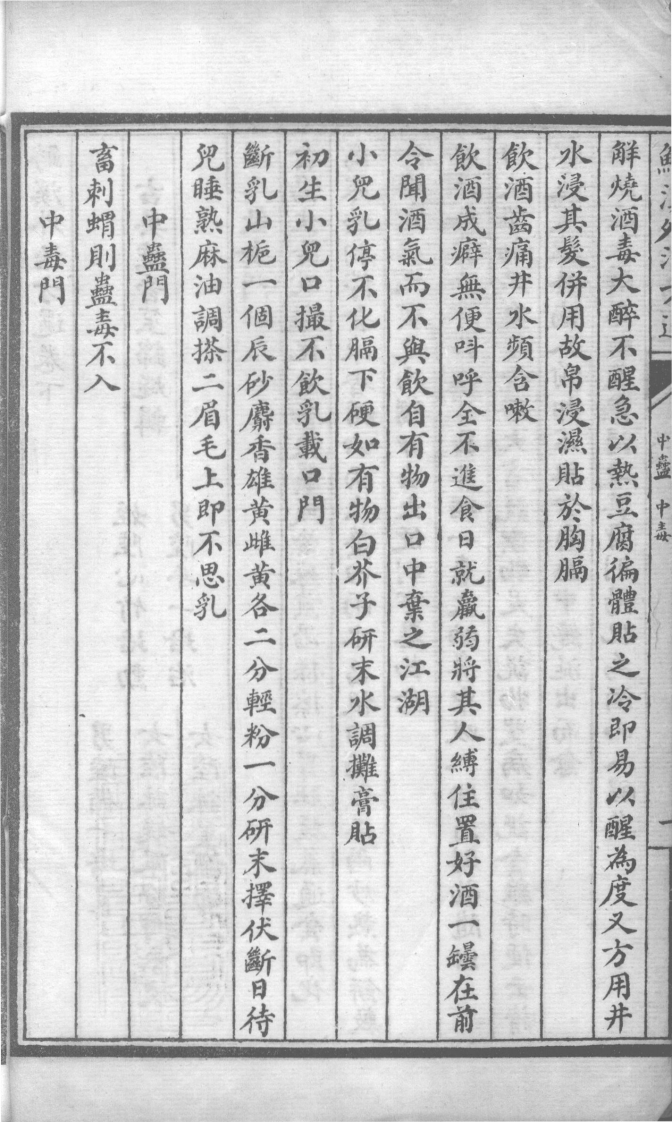 中蠱 中毒
解燒酒毒大醉不醒急以熱豆腐徧體貼之冷即易以醒為度又方用井
水浸其髮併用故帛浸濕貼於胸膈
飲酒齒痛井水頻含嗽
飲酒成癖無便呌呼全不進食日就羸弱將其人縛住置好酒一罎在前
令聞酒氣而不與飲自有物出口中棄之江湖
小兒乳停不化膈下硬如有物白芥子研末水調攤膏貼
初生小兒口撮不飲乳載口門
斷乳山梔一個辰砂麝香雄黃雌黃各二分輕粉一分研末擇伏斷日待
兒睡熟麻油調搽二眉毛上即不思乳
中蠱門
畜刺蝟則蠱毒不入
中毒門